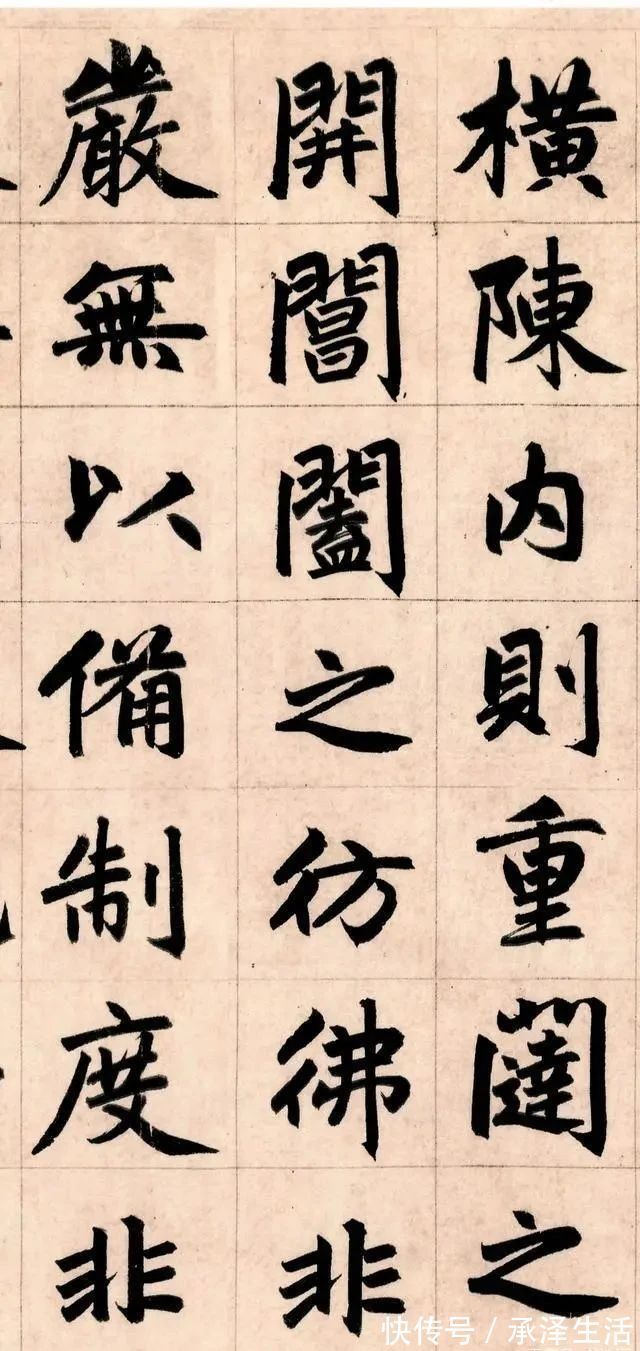 橫陳内則重闥之
開閶闔之彷彿非
嚴無以備制度非
快传号 / 承泽生活